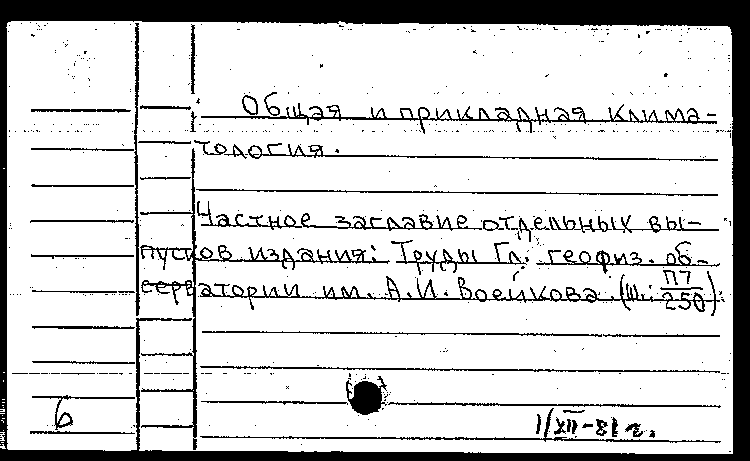 Общая и прикладная клима-
тология.
Частное заглавие отдельных вы-
пусков издания: Труды Гл. геофиз. об-
серватории им. А.И. Воейкова. (Ш.: П7/250).
6
1/XII-81 г.